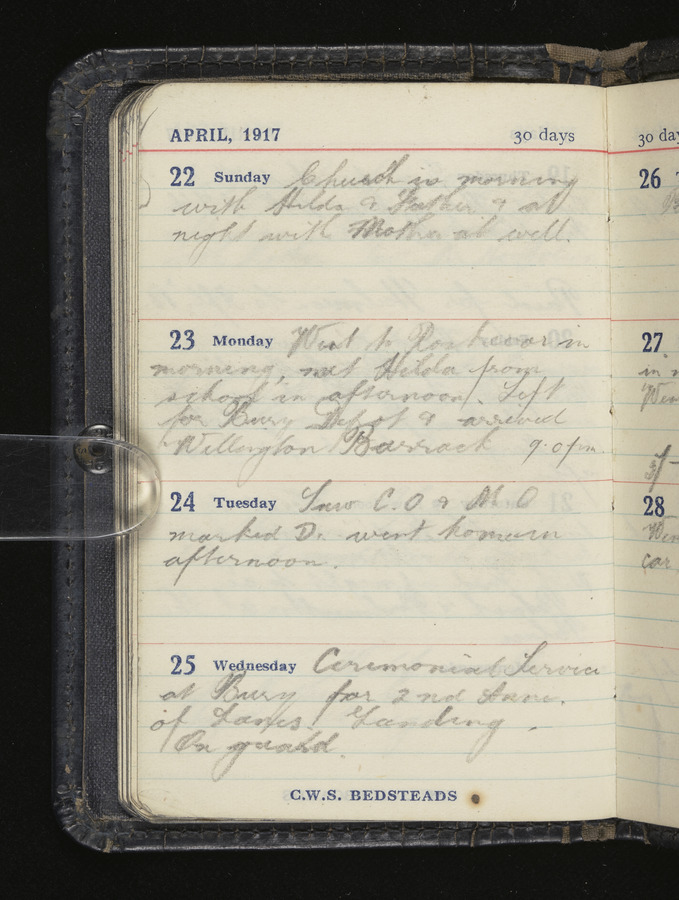 APRIL, 1917 30 days
22 Sunday Church in morning
with Hilda & Father & at
night with Mother at well.
23 Monday Went to in
morning, met Hilda from
school in afternoon. Left
for Bury Depot & arrived
Wellington Barrack 9.0 pm.
24 Tuesday Saw C.O & M.O
marked D. went home in
afternoon.
25 Wednesday Ceremonial Service
at Bury for 2nd Anni.
of Lancs. Landing.
On guard.
C.W.S. BEDSTEADS
30 da
26
27
in
28
car